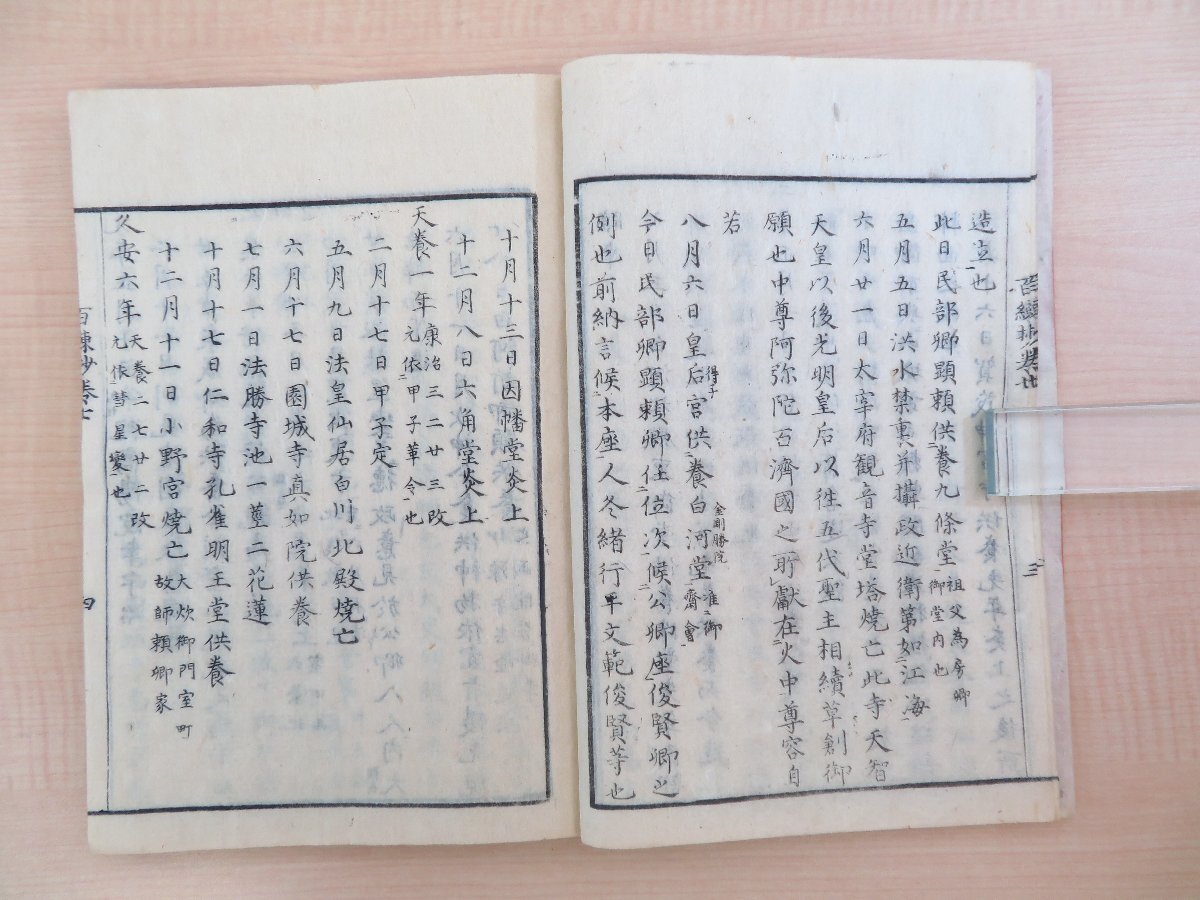 百練抄卷七
三
造立也
此日民部卿顕頼供養九條堂祖父為房卿御堂内也
五月五日洪水禁裏并攝政近衛第如江海
六月廿一日太宰府観音寺堂塔焼亡此寺天智
天皇以後光明皇后以往五代聖主相續草創御
願也中尊阿弥陀百濟國之所獻在火中尊容自
若
八月六日皇后宮得子供養白河堂金剛勝院准御斎會
今日民部卿顕頼卿任位次候公卿座俊賢卿之
例也前納言候本座人冬緒行平文範俊賢等也
十月十三日因幡堂炎上
十二月八日六角堂炎上
天養一年康治三二廿三改元依甲子革令也
二月十七日甲子定
五月九日法皇仙居白川北殿焼亡
六月十七日園城寺真如院供養
七月一日法勝寺池一莖二花蓮
十月十七日仁和寺孔雀明王堂供養
十二月十一日小野宮焼亡大炊御門室町故師頼卿家
久安六年天養二七廿二改元依彗星變也
百練抄卷七
四